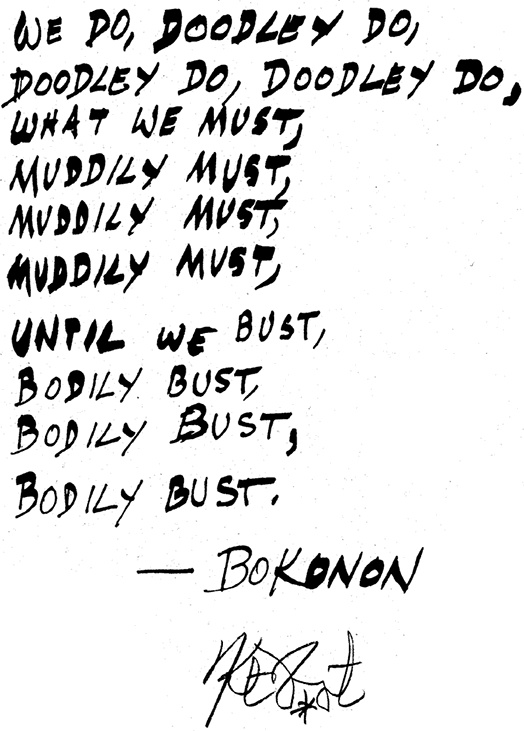 WE DO, DOODLEY DO,
DOODLEY DO, DOODLEY DO,
WHAT WE MUST,
MUDDILY MUST,
MUDDILY MUST,
MUDDILY MUST,
UNTIL WE BUST,
BODILY BUST,
BODILY BUST,
BODILY BUST.
— BOKONON